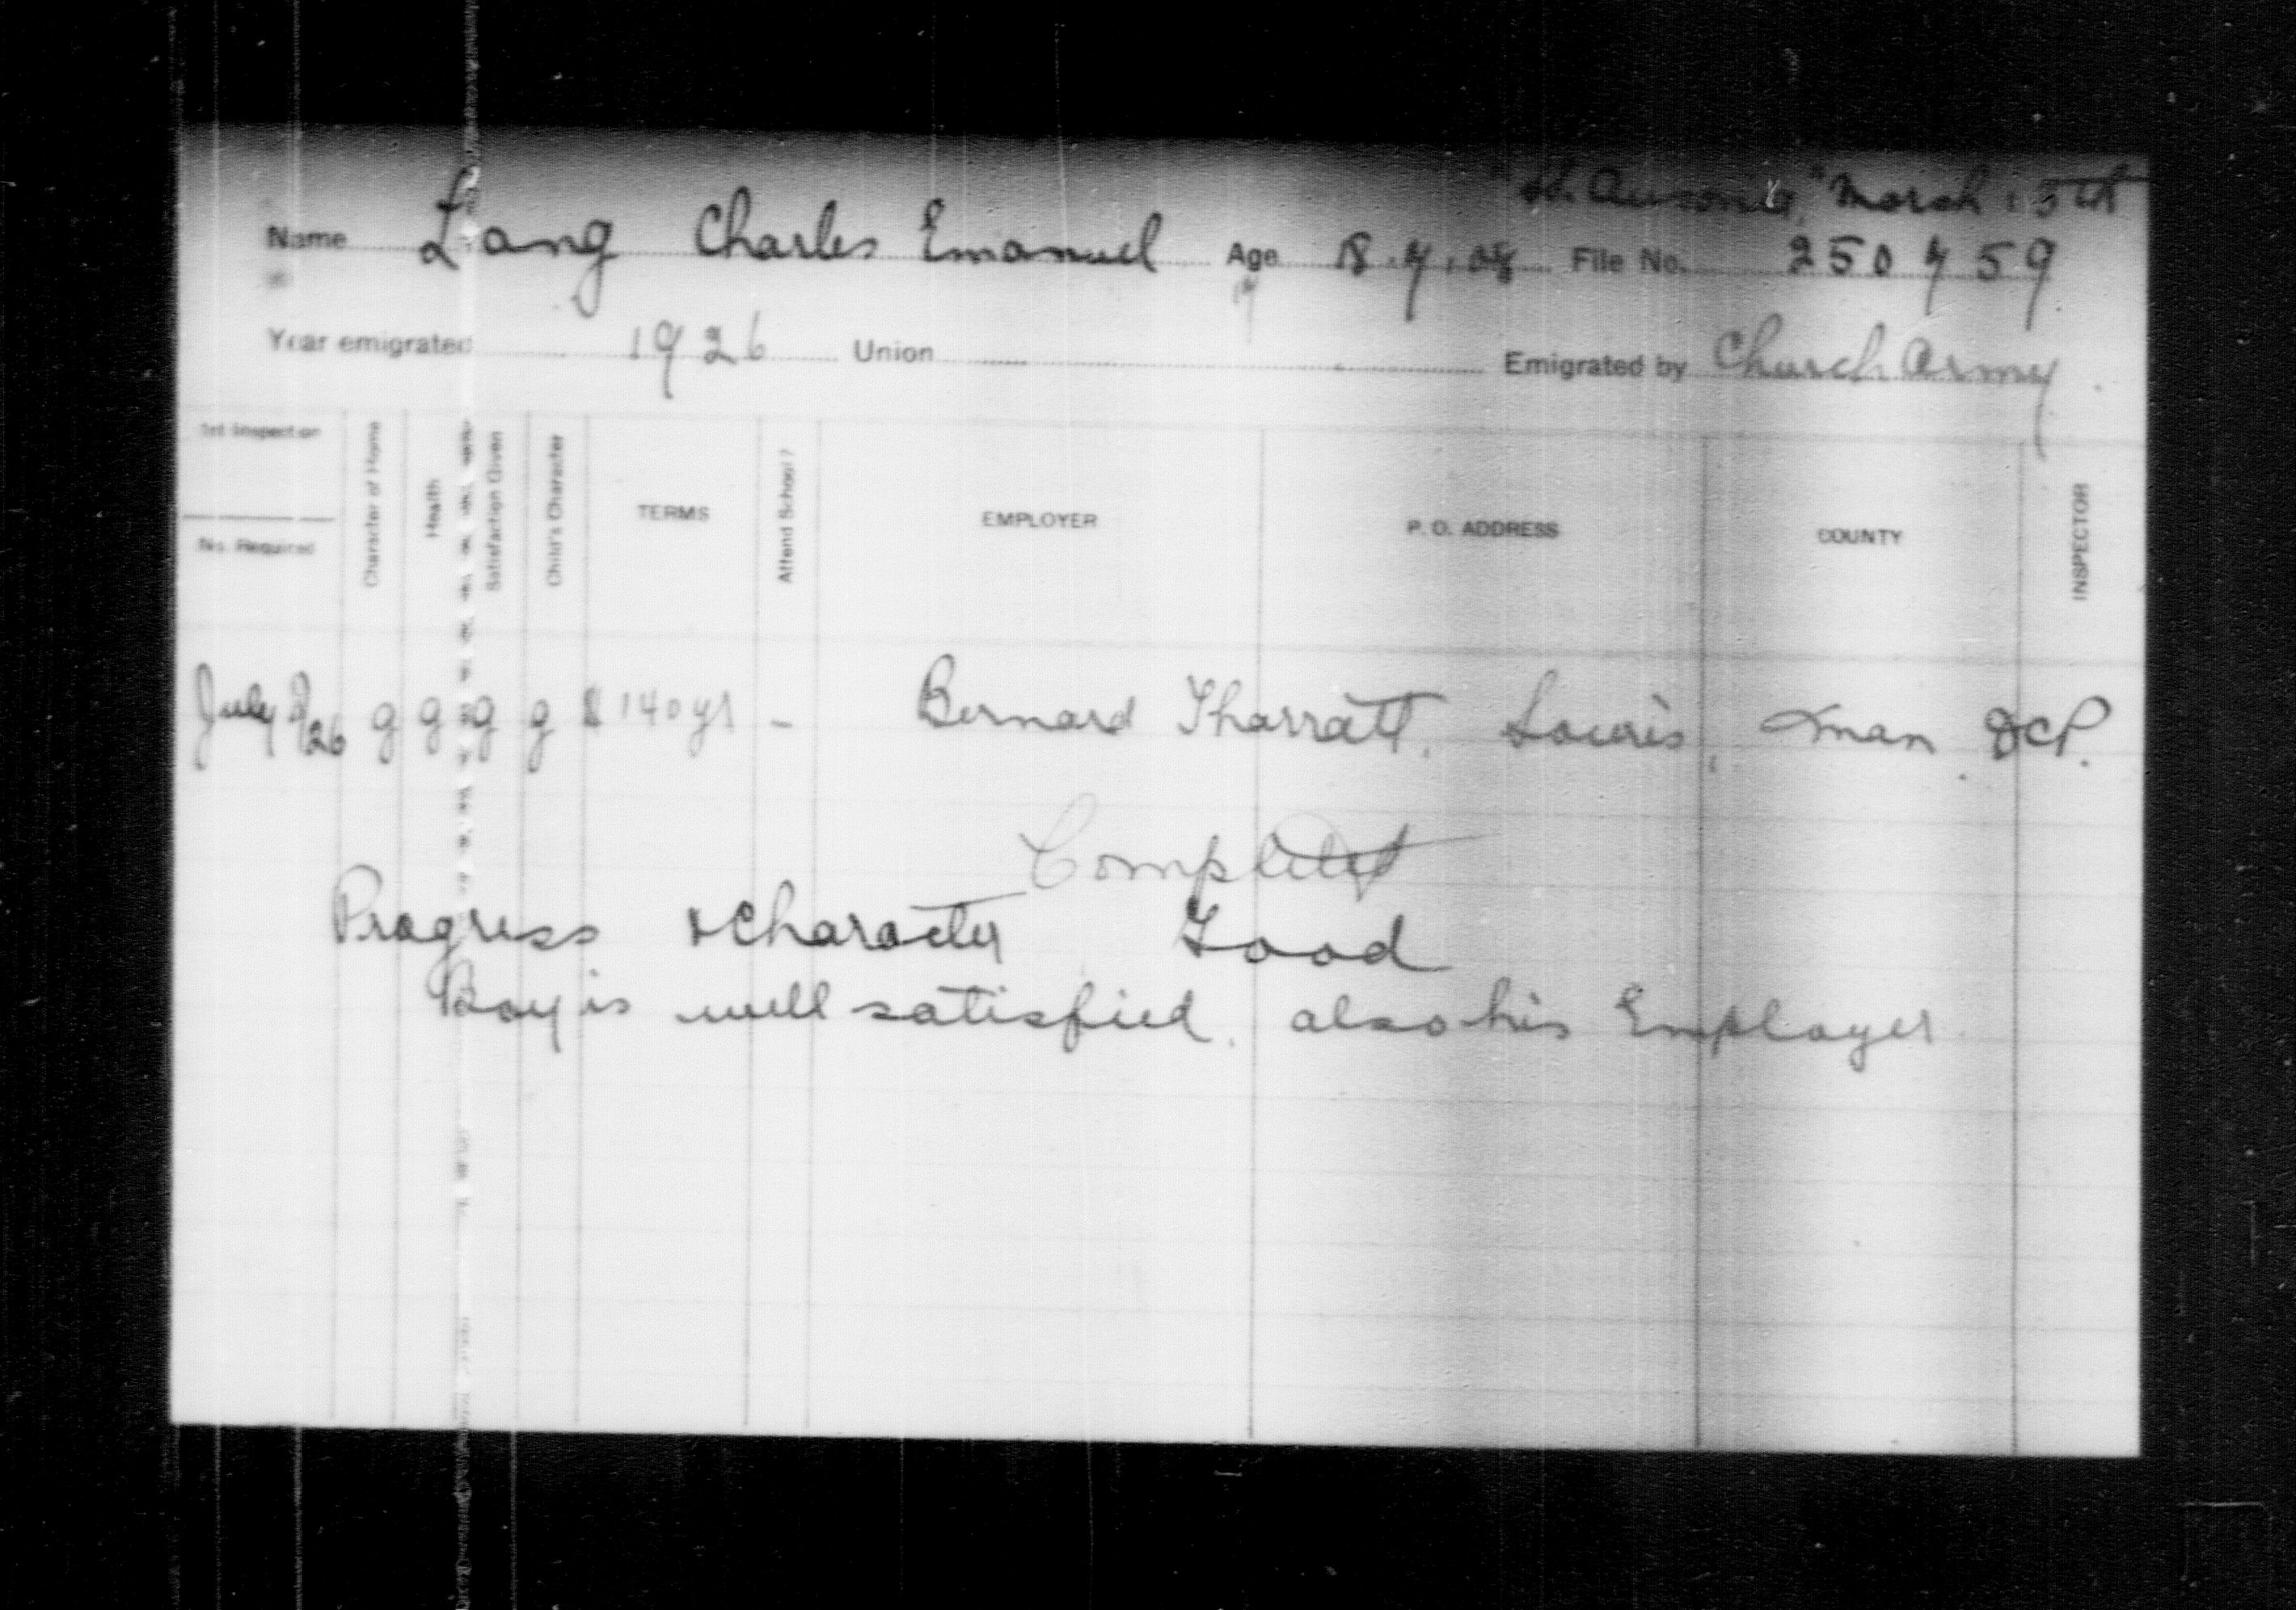 "Ausonia," March 13th
Name Lang Charles Emanuel Age 18.7.08 File No. 250759
17
Year emigrated 1926 Union Emigrated by Church Army
1st Inspection
No. Required
Character of Home
Health
Satisfaction Given
Child's Character
TERMS
Attend School?
EMPLOYER
P. O. ADDRESS
COUNTY
INSPECTOR
July /26 g g g g $140 yr - Bernard Tharratt, Souris, man. DCP.
Completed
Progress & Character Good
Boy is well satisfied, also his Employer